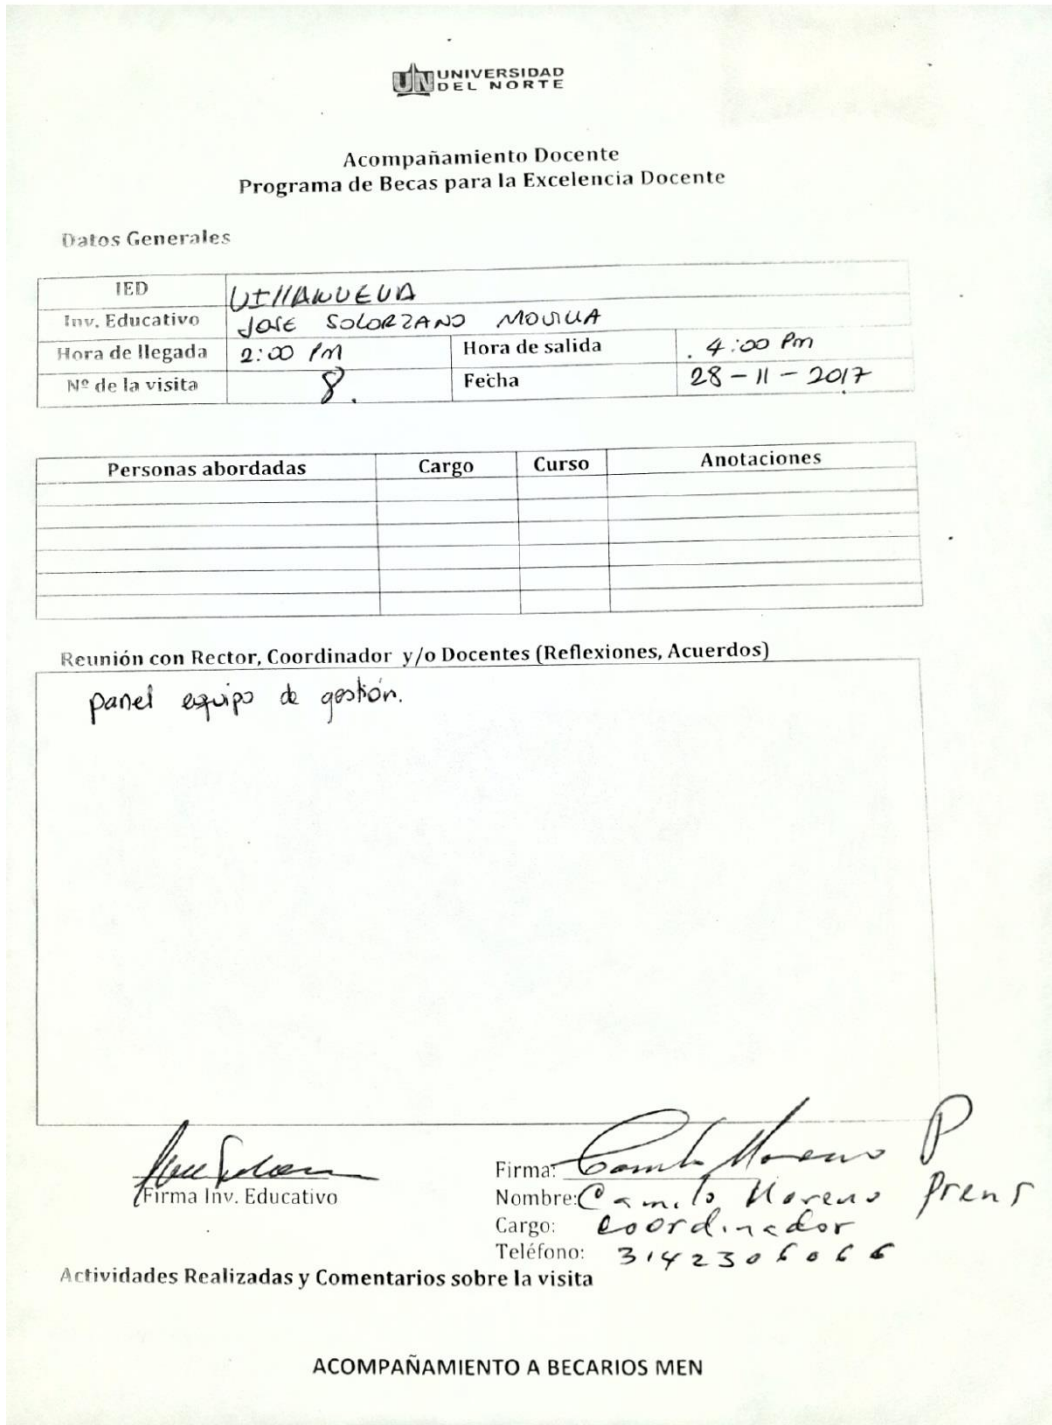 UN UNIVERSIDAD
DEL NORTE
Acompañamiento Docente
Programa de Becas para la Excelencia Docente
Datos Generales
IED VIllANUEVA
Inv. Educativo JOSE SOLORZANO MOVILLA
Hora de llegada 2:00 PM Hora de salida 4:00 Pm
Nº de la visita 8. Fecha 28-11-2017
Personas abordadas Cargo Curso Anotaciones
Reunión con Rector, Coordinador y/o Docentes (Reflexiones, Acuerdos)
panel equipo de gestión.
Firma Inv. Educativo
Firma: Camilo Moreno P
Nombre: Camilo Moreno Prens
Cargo: Coordinador
Teléfono: 3142306066
Actividades Realizadas y Comentarios sobre la visita
ACOMPAÑAMIENTO A BECARIOS MEN